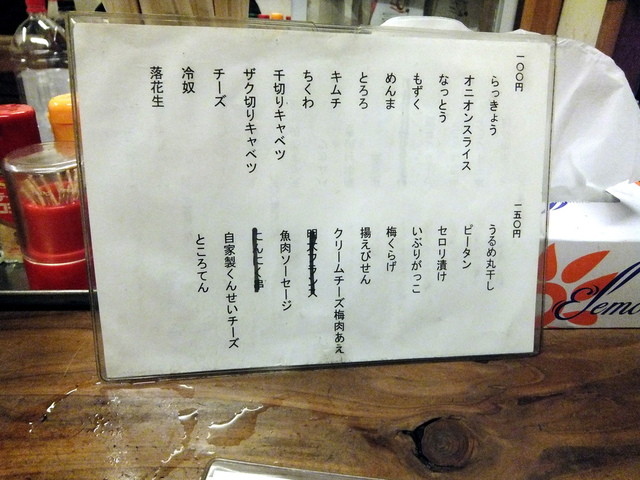 一〇〇円
らっきょう
オニオンスライス
なっとう
もずく
めんま
とろろ
キムチ
ちくわ
千切りキャベツ
ザク切りキャベツ
チーズ
冷奴
落花生
一五〇円
うるめ丸干し
ピータン
セロリ漬け
いぶりがっこ
梅くらげ
揚えびせん
クリームチーズ梅肉あえ
魚肉ソーセージ
自家製くんせいチーズ
ところてん